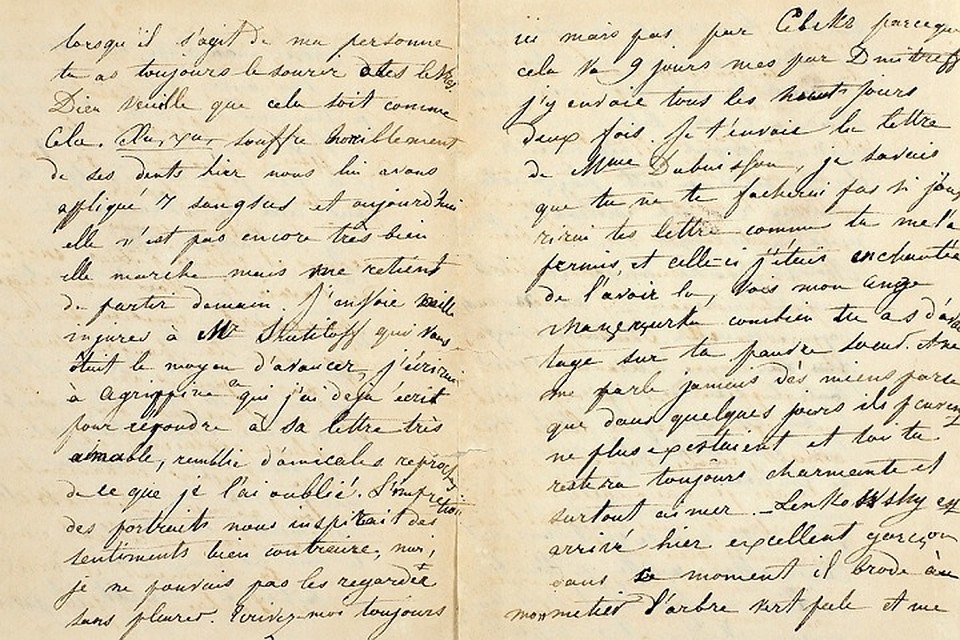 lorsqu'il s'agit de ma personne
tu as toujours le sourir des lettres
Dieu veuille que cela soit comme
Cela. souffre horriblement
de ses dents hier nous lui avons
appliqué 7 sangsus et aujourd'hui
elle n'est pas encore très bien
elle marche mais me retient
de partir demain. J'envoie mille
injures à Mr qui vous
ôtait le moyen d'avancer, j'écrirai
à Agrippine qui j'ai déja écrit
pour repondre à sa lettre très
aimable, remblie d'amicales reproches
de ce que je l'ai oublié. L'impression
des portraits nous inspirait des
sentiments bien contraire, moi,
je ne pouvais pas les regarder
sans pleurer. Ecrivez-moi toujours
ici mais pas par parceque
cela va 9 jours mes par
j'y envoie tous les jours
deux fois. Je t'envoie la lettre
de Mme Dubuisson, je savais
que tu ne te facherai pas si j'ou
rirai tes lettre comme tu me l'a
permis, et celle-ci j'étais enchantée
de l'avoir lu, Vois mon ange
combien tu as d'avan
tage sur ta pauvre soeur. Ane
me parle jamais des miens parce
que dans quelques jours ils peuvent
ne plus existaient et toi tu
restera toujours charmante et
surtout aimer. - Lenkowsky est
arrivé hier excellent garçon
dans ce moment il brode au
mon metier l'arbre vert et me